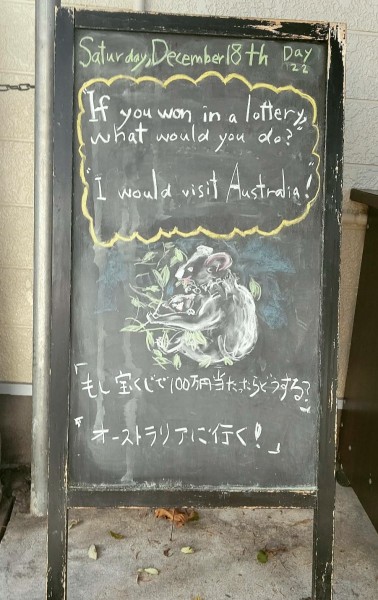 Saturday, December 18th Day 22
If you won in a lottery,
what would you do?"
"I would visit Australia!"
「もし宝くじで100万円当たったらどうする?」
「オーストラリアに行く!」